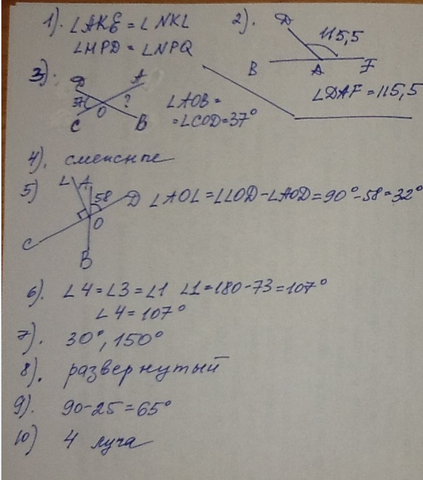 1). ∠AKE = ∠NKL
∠MPD = ∠NPQ
2).
D
115,5
B A F
∠DAF = 115,5
3).
D A
37 O ?
C B
∠AOB =
= ∠COD = 37°
4). смежные
5)
L A
58 D
O
C
B
∠AOL = ∠LOD - ∠AOD = 90° - 58 = 32°
6). ∠4 = ∠3 = ∠1 ∠1 = 180 - 73 = 107°
∠4 = 107°
7). 30°, 150°
8). развернутый
9). 90 - 25 = 65°
10) 4 луча